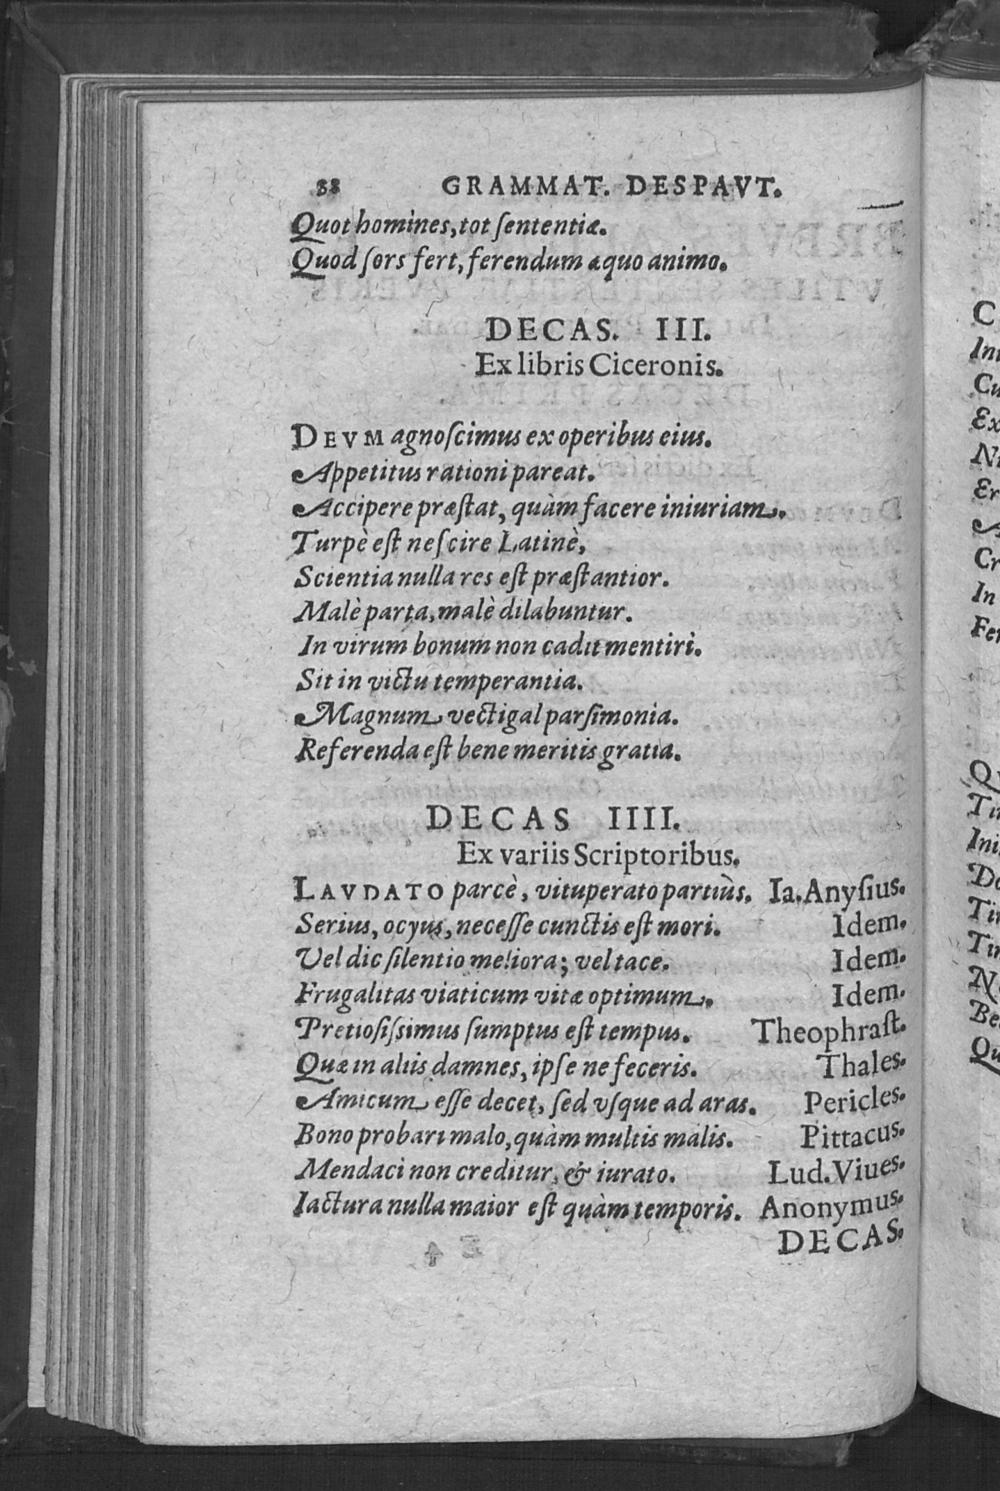 88 GRAMMAT. DESPAVT.
Quot homines, tot ſententiæ.
Quod ſors fert, ferendum æquo animo.
DECAS. III.
Ex libris Ciceronis.
DEVM agnoſcimus ex operibus eius.
Appetitus rationi pareat.
Accipere præſtat, quàm facere iniuriam.
Turpè eſt neſcire Latinè,
Scientia nulla res eſt præſtantior.
Malè parta, malè dilabuntur.
In virum bonum non cadit mentiri.
Sit in victu temperantia.
Magnum vectigal parſimonia.
Referenda eſt bene meritis gratia.
DECAS IIII.
Ex variis Scriptoribus.
LAVDATO parcè, vituperato partiùs. Ia. Anyſius.
Serius, ocyus, neceſſe cunctis eſt mori. Idem.
Vel dic ſilentio meliora; vel tace. Idem.
Frugalitas viaticum vitæ optimum. Idem.
Pretioſiſsimus ſumptus eſt tempus. Theophraſt.
Quæ in aliis damnes, ipſe ne feceris. Thales.
Amicum eſſe decet, ſed vſque ad aras. Pericles.
Bono probari malo, quàm multis malis. Pittacus.
Mendaci non creditur, & iurato. Lud. Viues.
Iactura nulla maior eſt quàm temporis. Anonymus.
DECAS.
C
In
Cu
Ex
Ni
Er
A
Cr
In
Fer
Qu
Tu
Ini
Do
Ti
Tu
N
Be
Qu